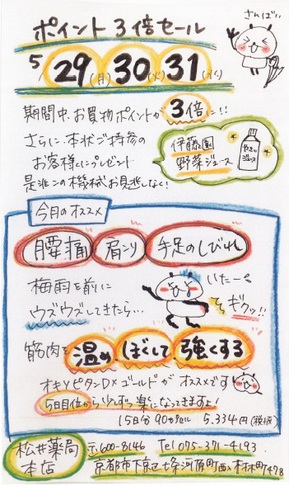 さんばい
ポイント3倍セール
5/29(月)30(火)31(水)
期間中、お買物ポイントが3倍に!!
さらに、本状ご持参の
お客様にプレゼント
伊藤園
野菜ジュース
やさいジュース
是非この機械お見逃しなく!
今月のオススメ
腰痛 肩こり 手足のしびれ
梅雨を前に
ウズウズしてきたら…
いたーい
ギクッ!!
筋肉を温めほぐして強くする
オキソピタンDXゴールドがオススメです
5日目位から少しずつ楽になってきますよ!
15日分 90カプセル 5,334円(税抜)
松井薬局
本店
〒600-8146 Tel 075-371-4193
京都市下京区七条河原町西入材木町478